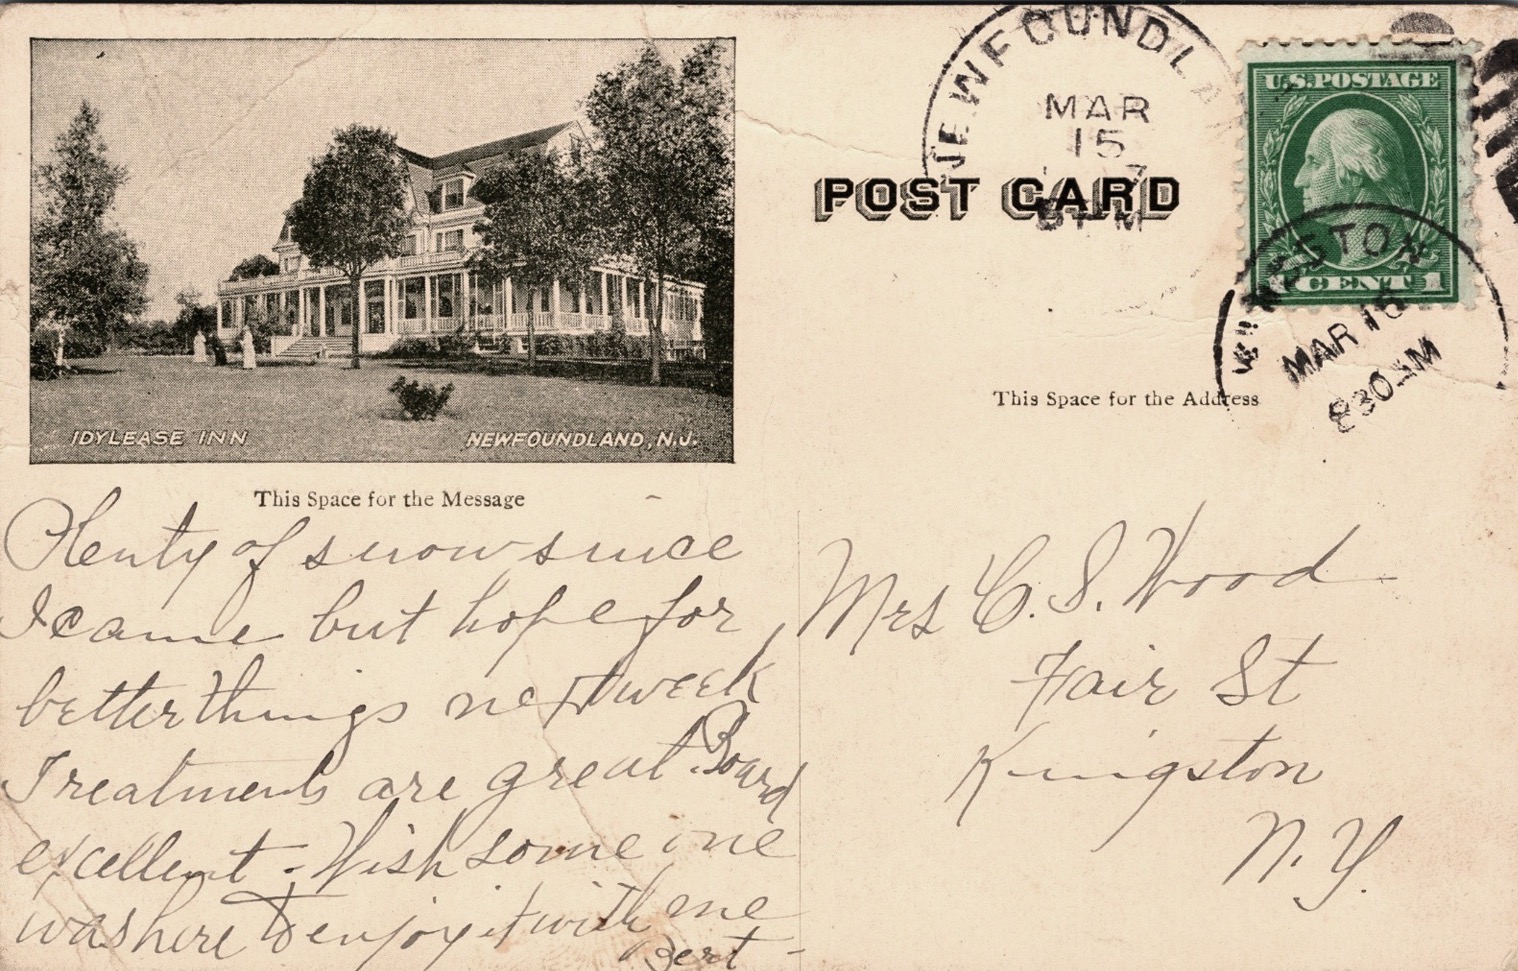 IDYLEASE INN
NEWFOUNDLAND, N.J.
This Space for the Message
Plenty of snow since
I came but hope for
better things next week
Treatments are great. Board
excellent - Wish some one
was here to enjoy it with me
Bert -
NEWFOUNDLA
MAR
15
7
M
POST CARD
U.S. POSTAGE
CENT 1
GSTON
MAR 16
830 AM
This Space for the Address
Mrs C. S. Wood
Fair St
Kingston
N. Y.